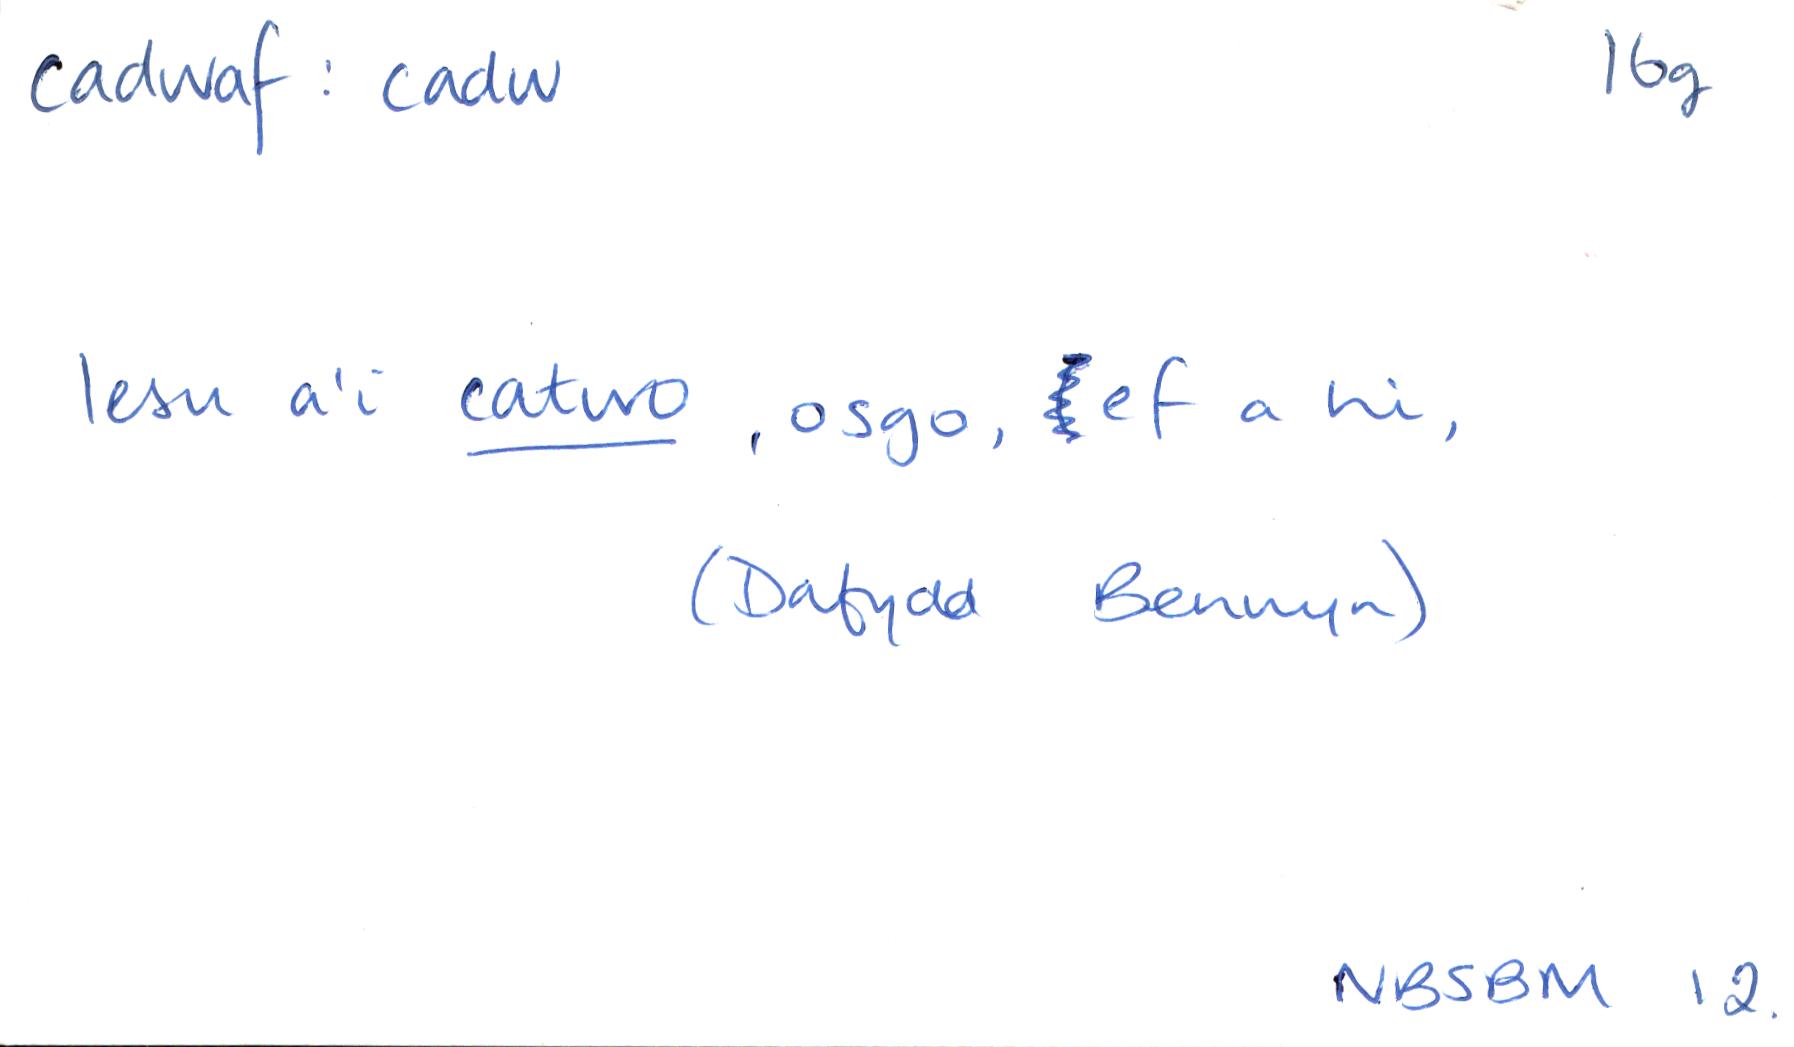 cadwaf : cadw 16g
Iesu a'i catwo, osgo, ef a hi,
(Dafydd Benwyn)
NBSBM 12.